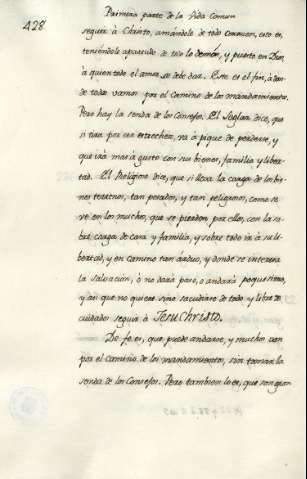 428
Primera parte de la Vida Comun
seguir à Christo, amandole de todo corazon, esto es,
teniendole apartado de todo lo demàs, y puesto en Dios,
à quien todo el amor se debe dar. Este es el fin, à don-
de todos vamos por el camino de los mandamientos.
Pero hay la senda de los Consejos. El Seglar dice, que
si vàn por esa estrecheza, và à pique de perderse, y
que irà mas à gusto con sus bienes, familia y liber-
tad. El Religioso dice, que si lleva la carga de los bie-
nes terrenos, tan pesados, y tan peligrosos, como se
vè en los muchos, que se pierden por ellos, con la so-
bre carga de casa y familia, y sobre todo de su li-
bertad, y en camino tan arduo, y donde se interesa
la salvacion, ò no darà paso, ò andarà poquisimo,
y asi que no quiere sino sacudirse de todo y libre de
cuidados seguir à Jesu Christo.
De fe es, que puede andarse, y muchos van
por el camino de los mandamientos, sin tomar la
senda de los Consejos. Pero tambien lo es, que son